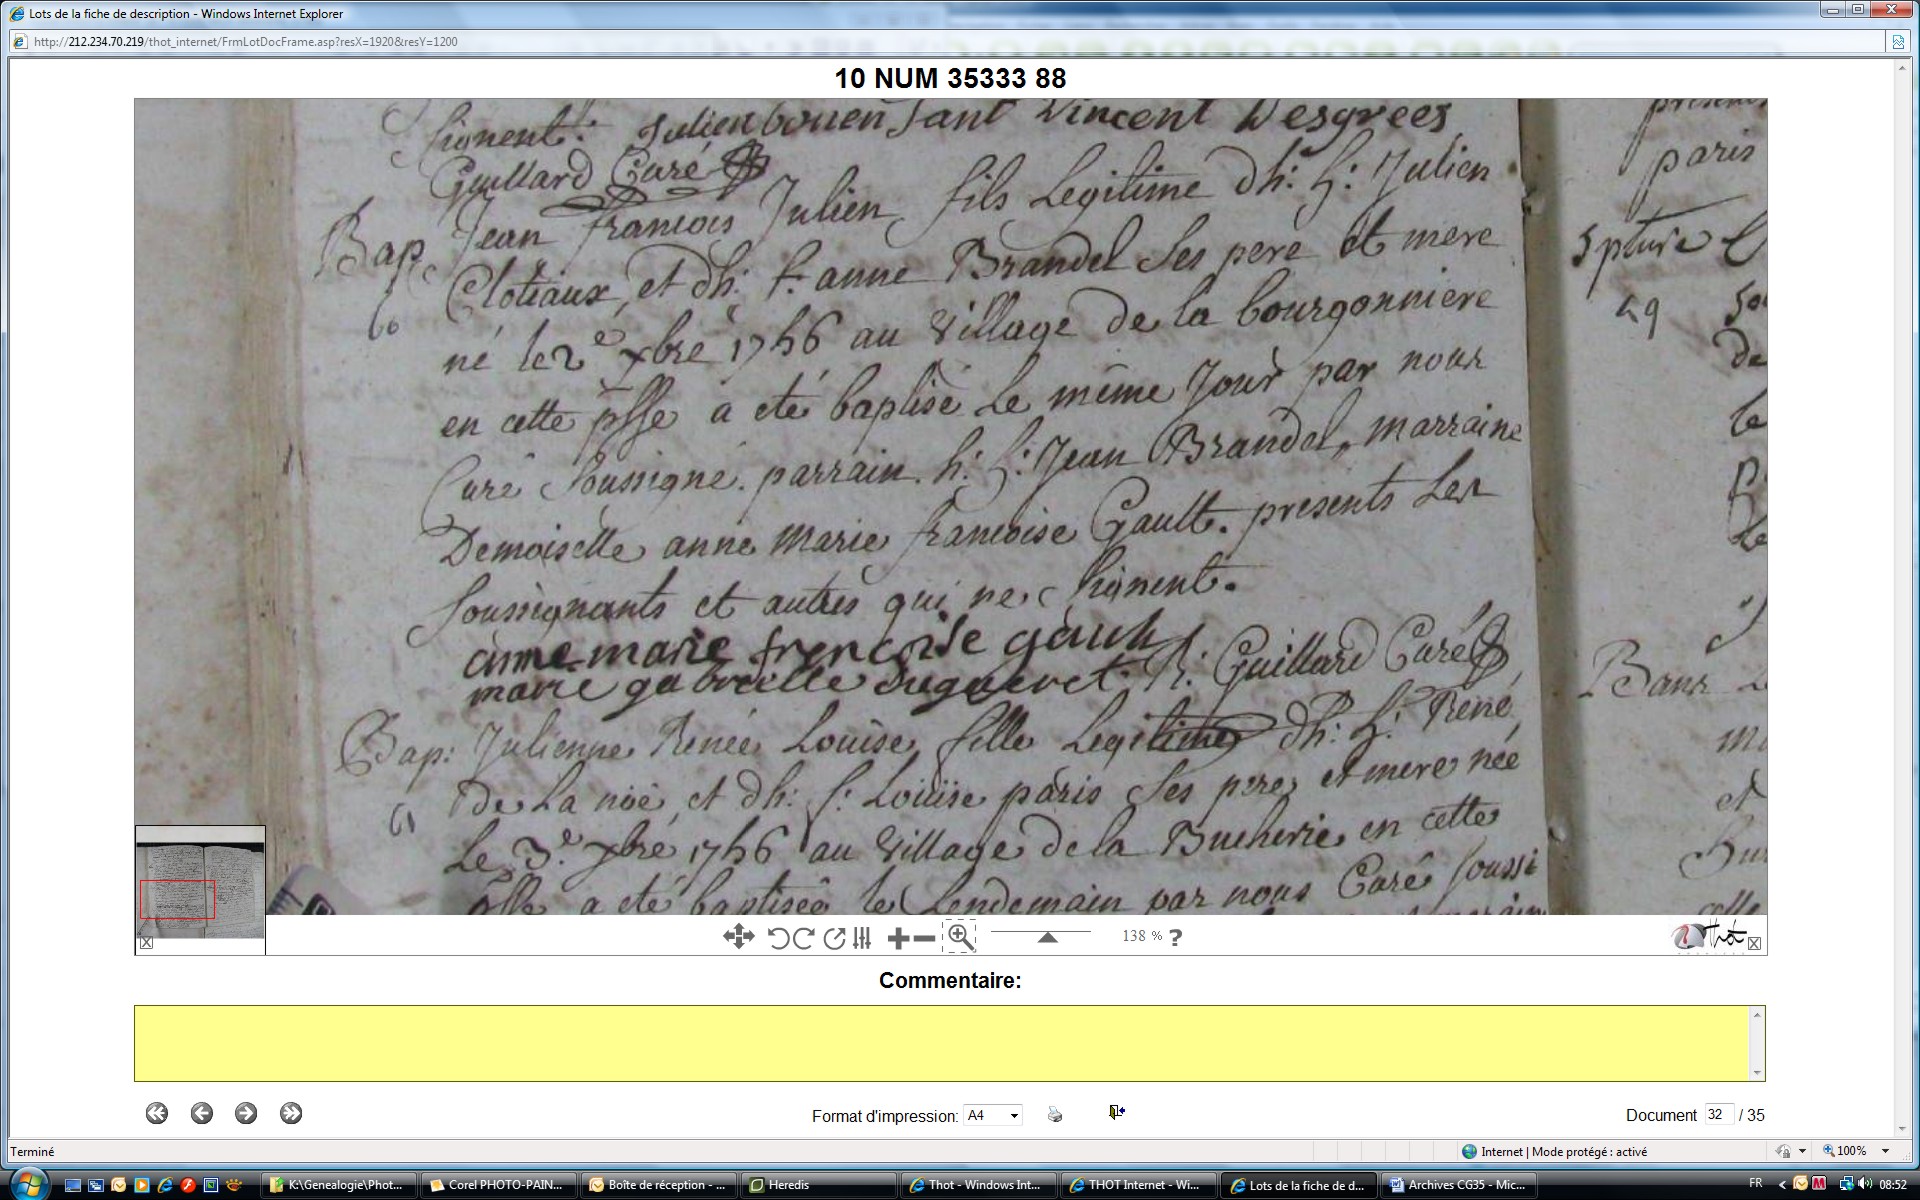 Lots de la fiche de description - Windows Internet Explorer
http://212.234.70.219/thot_internet/FrmLotDocFrame.asp?resX=1920&resY=1200
10 NUM 35333 88
signent. Julien bouen Vincent Desgrees
Guillard Curé
Bap. Jean francois Julien fils Legitime dh: h: Julien
Cloteaux, et dh: f: anne Brandel Ses pere et mere
60
né le 2e xbre 1756 au Village de la bourgonniere
en cette psse a eté baptisé le même Jour par nous
Curé Soussigné. parrain. h: h: Jean Brandel, marraine
Demoiselle anne marie francoise Gault. presents Les
Soussignants et autres qui ne Signent.
anne marie francoise gault
marie gabrielle h: Guillard Curé
Bap: Julienne Renée Louise fille Legitime dh: h: René
de La noë et dh: f: Louise paris Ses pere et mere née
61
Le 3e xbre 1756 au Village de la Bucherie en cette
psse a eté baptisée le Lendemain par nous Curé Soussi
paris
Spture
49
de
le
Bans
et
cette
138 %
?
Thot
Commentaire:
Format d'impression: A4
Document 32 / 35
Terminé
Internet | Mode protégé : activé
100%
K:\Genealogie\Phot...
Corel PHOTO-PAIN...
Boîte de réception - ...
Heredis
Thot - Windows Int...
THOT Internet - Wi...
Lots de la fiche de d...
Archives CG35 - Mic...
FR
08:52